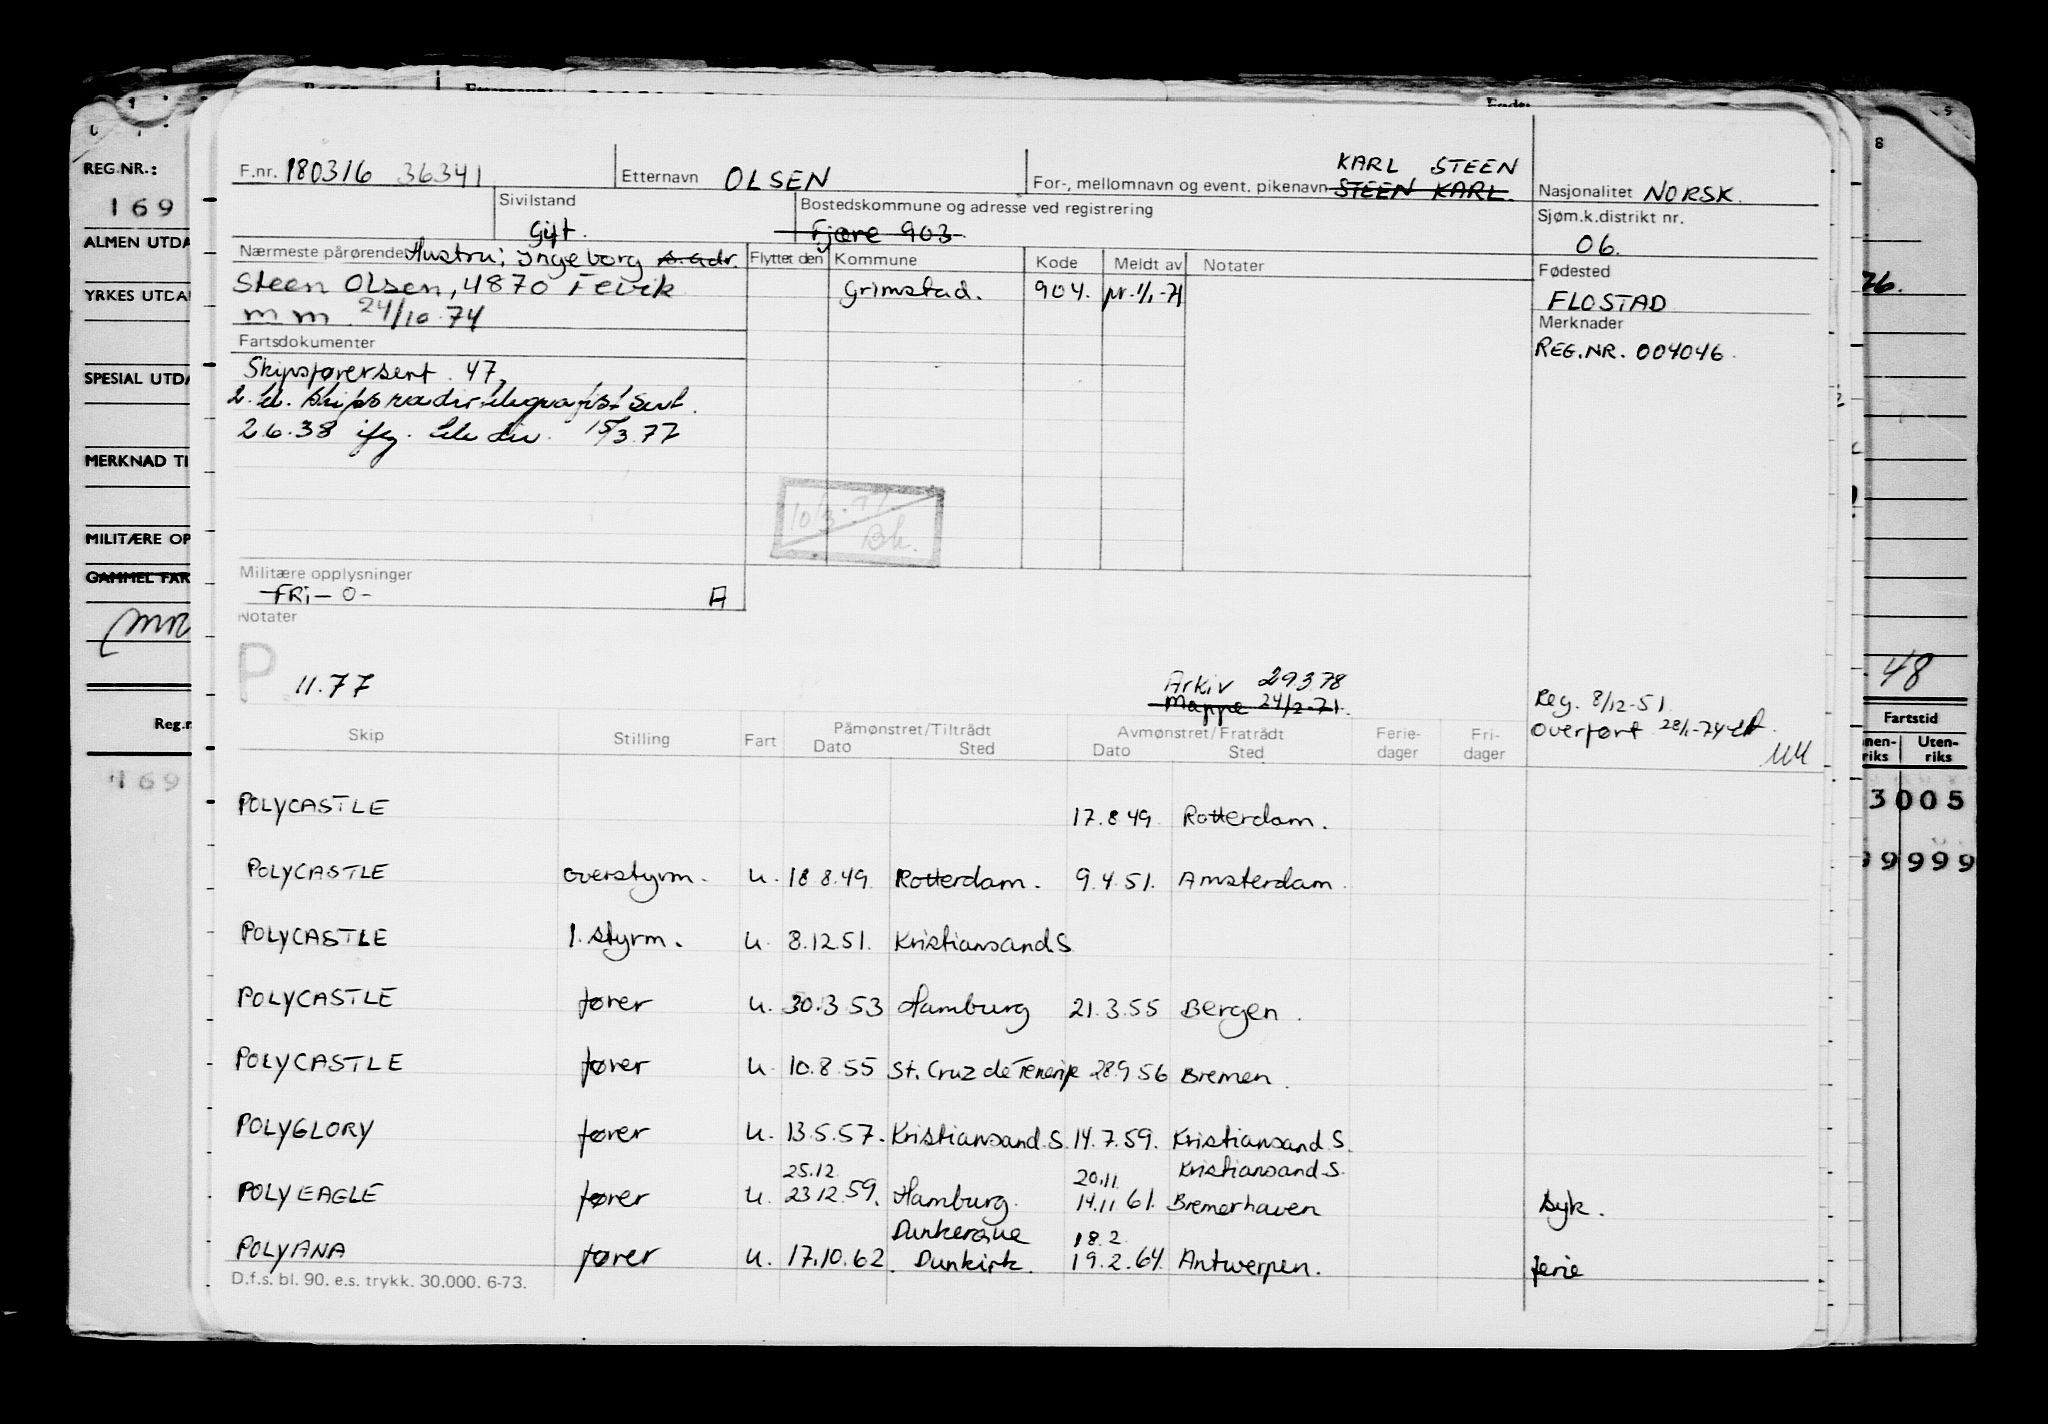 REG.NR.:
169
ALMEN UTDA
YRKES UTDA
SPESIAL UTDA
MERKNAD TI
MILITÆRE OP
GAMMEL FAR
Reg.n
169
F.nr. 180316 36341
Etternavn OLSEN
KARL STEEN
For-, mellomnavn og event. pikenavn STEEN KARL.
Nasjonalitet NORSK.
Sivilstand
Gift.
Bostedskommune og adresse ved registrering
Fjære 903
Sjøm.k.distrikt nr.
06.
Nærmeste pårørende Hustru: Ingeborg s. adr.
Steen Olsen, 4870 Fevik
mm 24/10.74
Flyttet den Kommune Kode Meldt av Notater
Grimstad. 904. pr. 1/1-71
Fødested
FLOSTAD
Merknader
REG.NR. 004046.
Fartsdokumenter
Skipsførersert. 47,
2. kl. Skipsradiotelegrafist sert.
2.6.38 15/3.77
10/3.77
Bh.
Militære opplysninger
FRI - 0 - A
Notater
P 11.77
Arkiv 29378
Mappe 24/2-71.
Reg. 8/12-51.
Overført 28/1-74
Skip Stilling Fart Påmønstret/Tiltrådt Avmønstret/Fratrådt Ferie- Fri-
Dato Sted Dato Sted dager dager
POLYCASTLE 17.8 49 Rotterdam.
POLYCASTLE overstyrm. u. 18 8.49 Rotterdam. 9.4.51. Amsterdam.
POLYCASTLE 1. styrm. u. 8.12.51. Kristiansand S
POLYCASTLE fører u. 30.3 53 Hamburg 21.3.55 Bergen.
POLYCASTLE fører u. 10.8.55 St. Cruz de Tenerife 28.9 56 Bremen.
POLYGLORY fører u. 13.5.57. Kristiansand. S. 14.7.59. Kristiansand S.
25.12. 20.11. Kristiansand S.
POLYEAGLE fører u. 23.12.59. Hamburg. 14.11 61. Bremerhaven syk.
Dunkerque 18.2.
POLYANA fører u. 17.10.62. Dunkirk. 19.2.64. Antwerpen. ferie
D.f.s. bl. 90. e.s. trykk. 30.000. 6-73.
8
76.
48
Fartstid
nen-
riks
Uten-
riks
3005
99999